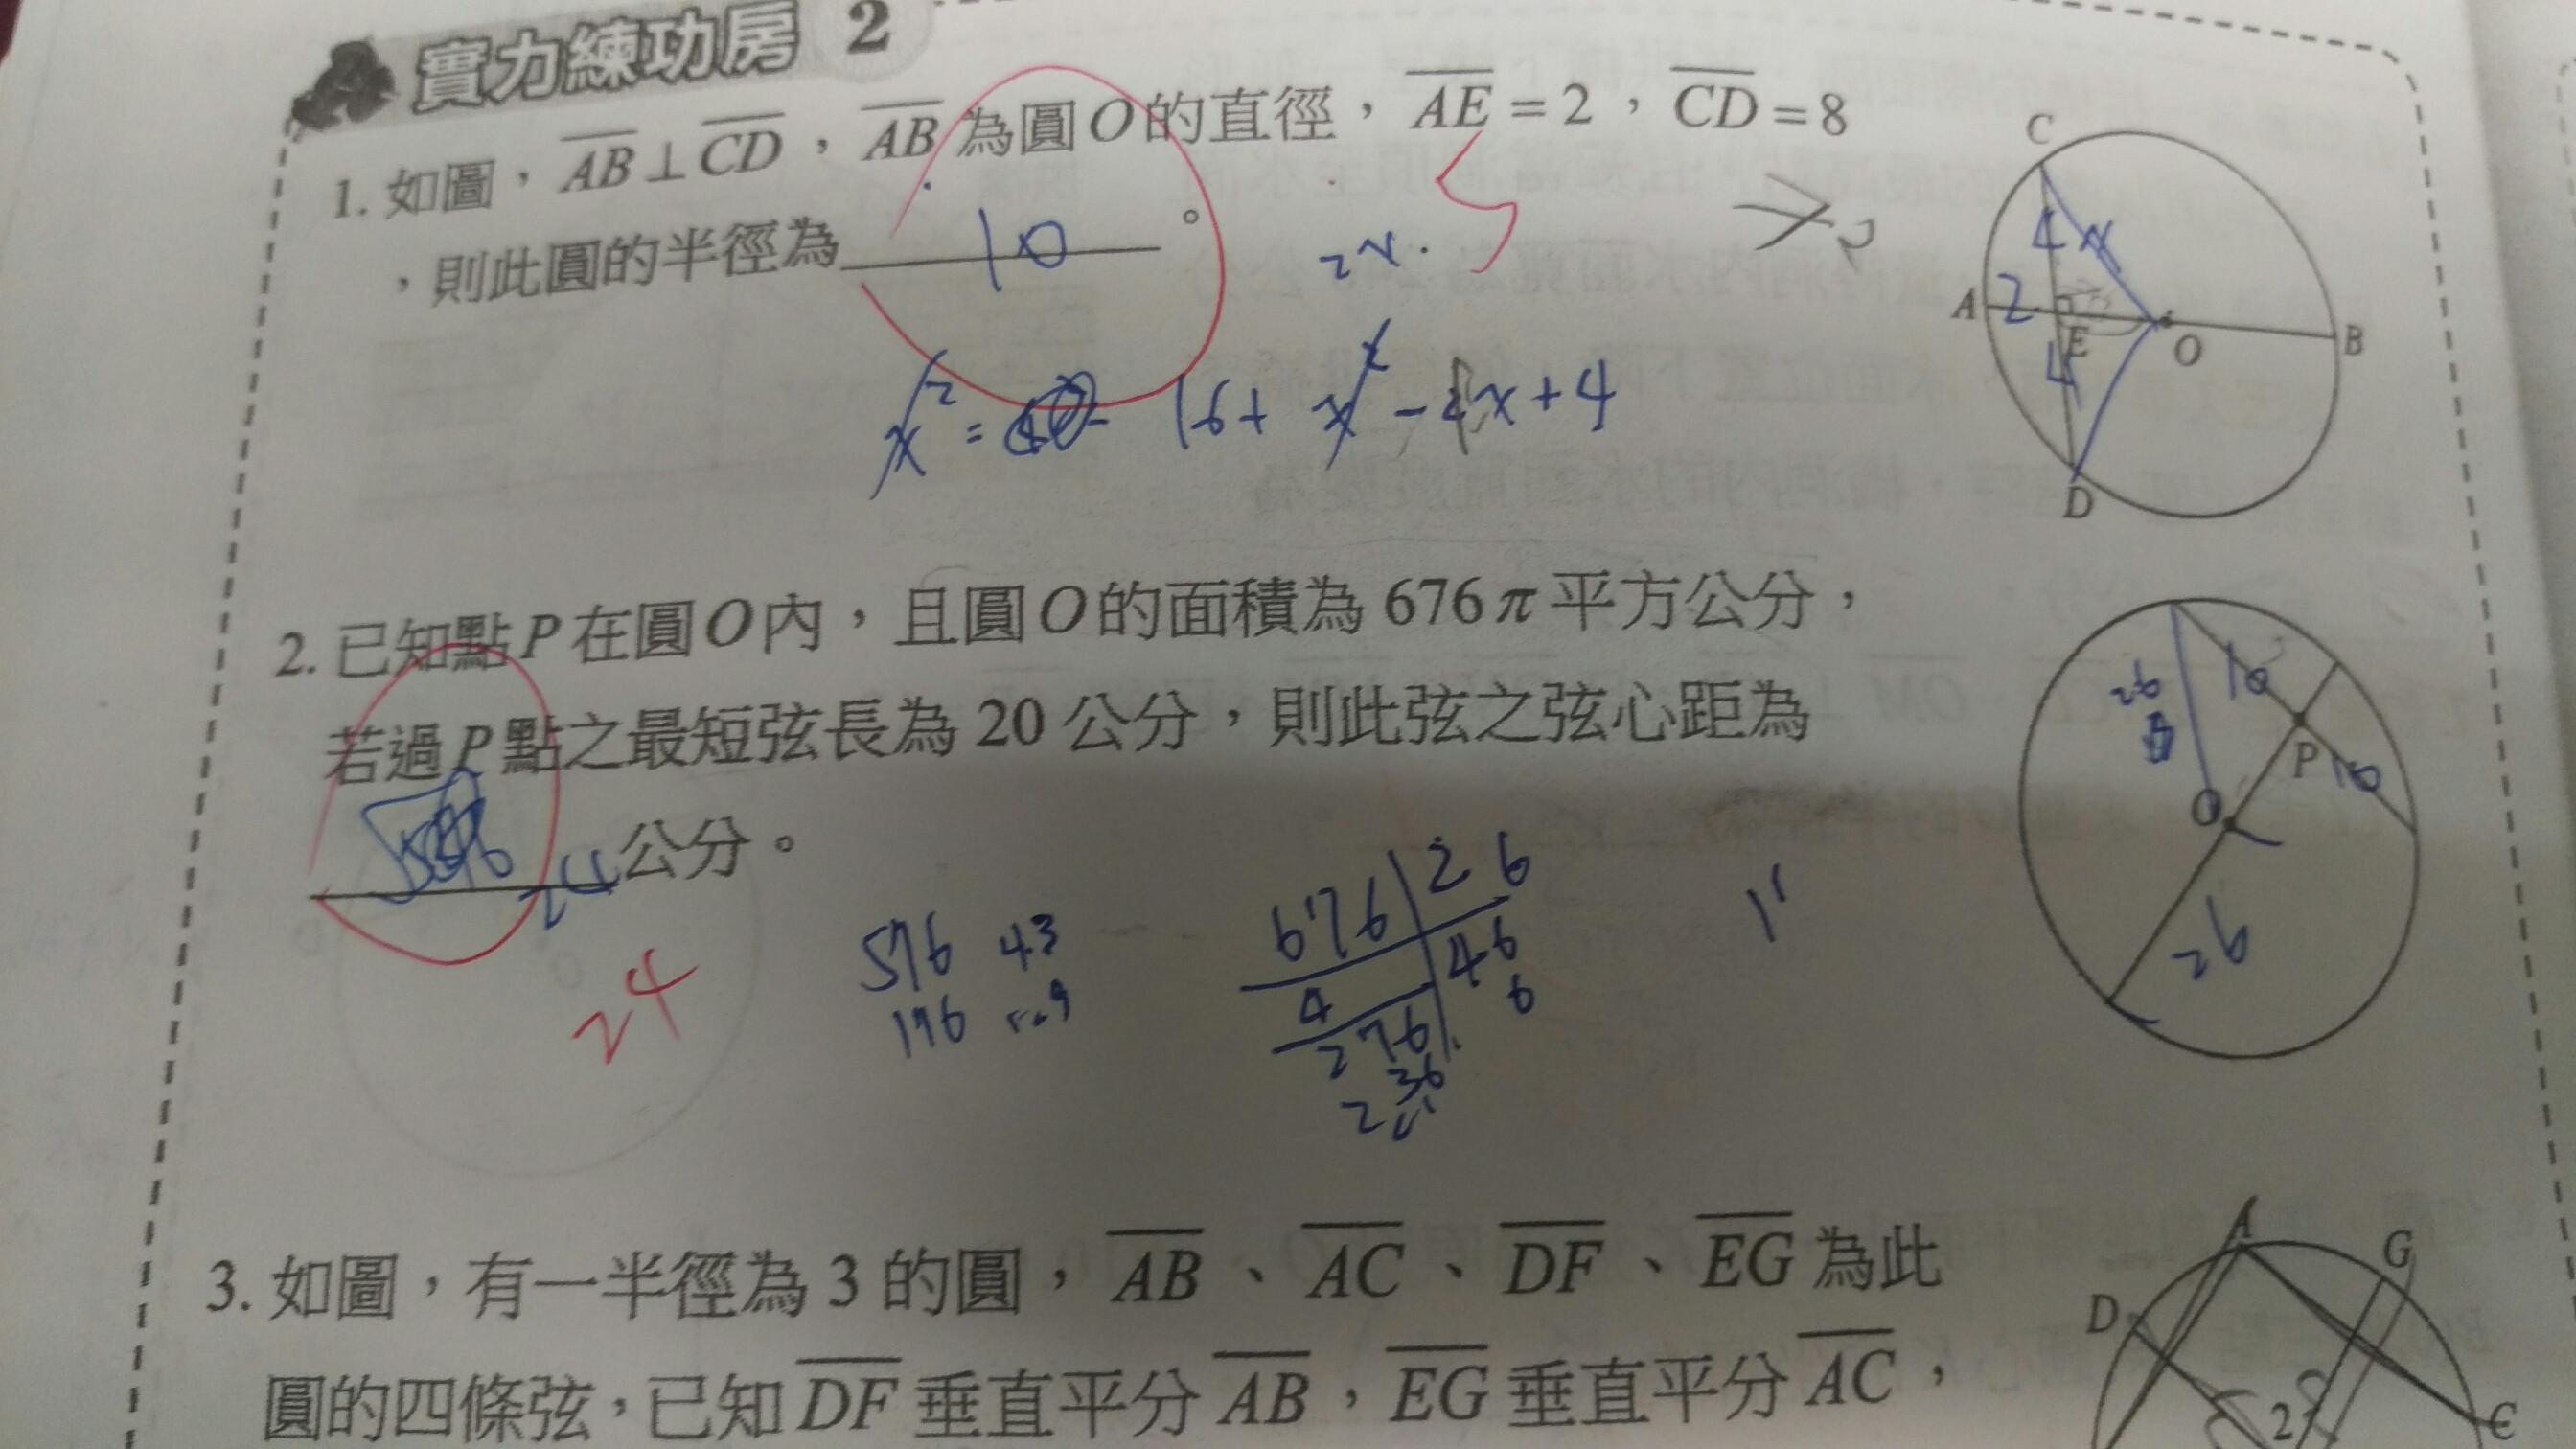 實力練功房 2
1. 如圖，AB⊥CD，AB為圓O的直徑，AE=2，CD=8
，則此圓的半徑為 10 。
5
2x.
x² = 16+ x² - 4x+4
C
4 x
A 2 E O B
4
D
2. 已知點P在圓O內，且圓O的面積為676π平方公分，
若過P點之最短弦長為20公分，則此弦之弦心距為
24 公分。
24
576
176
676 26
4 46
276 6
36
26 10
P 10
O
26
3. 如圖，有一半徑為3的圓，AB、AC、DF、EG為此
圓的四條弦，已知DF垂直平分AB，EG垂直平分AC，
A G
D
2 C